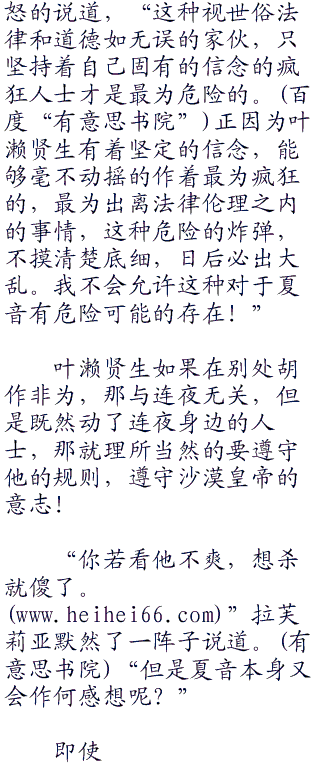 怒的说道，“这种视世俗法
律和道德如无误的家伙，只
坚持着自己固有的信念的疯
狂人士才是最为危险的。(百
度“有意思书院”)正因为叶
濑贤生有着坚定的信念，能
够毫不动摇的作着最为疯狂
的，最为出离法律伦理之内
的事情，这种危险的炸弹，
不摸清楚底细，日后必出大
乱。我不会允许这种对于夏
音有危险可能的存在！”
叶濑贤生如果在别处胡
作非为，那与连夜无关，但
是既然动了连夜身边的人
士，那就理所当然的要遵守
他的规则，遵守沙漠皇帝的
意志！
“你若看他不爽，想杀
就傻了。
(www.heihei66.com)”拉芙
莉亚默然了一阵子说道。(有
意思书院)“但是夏音本身又
会作何感想呢？”
即使